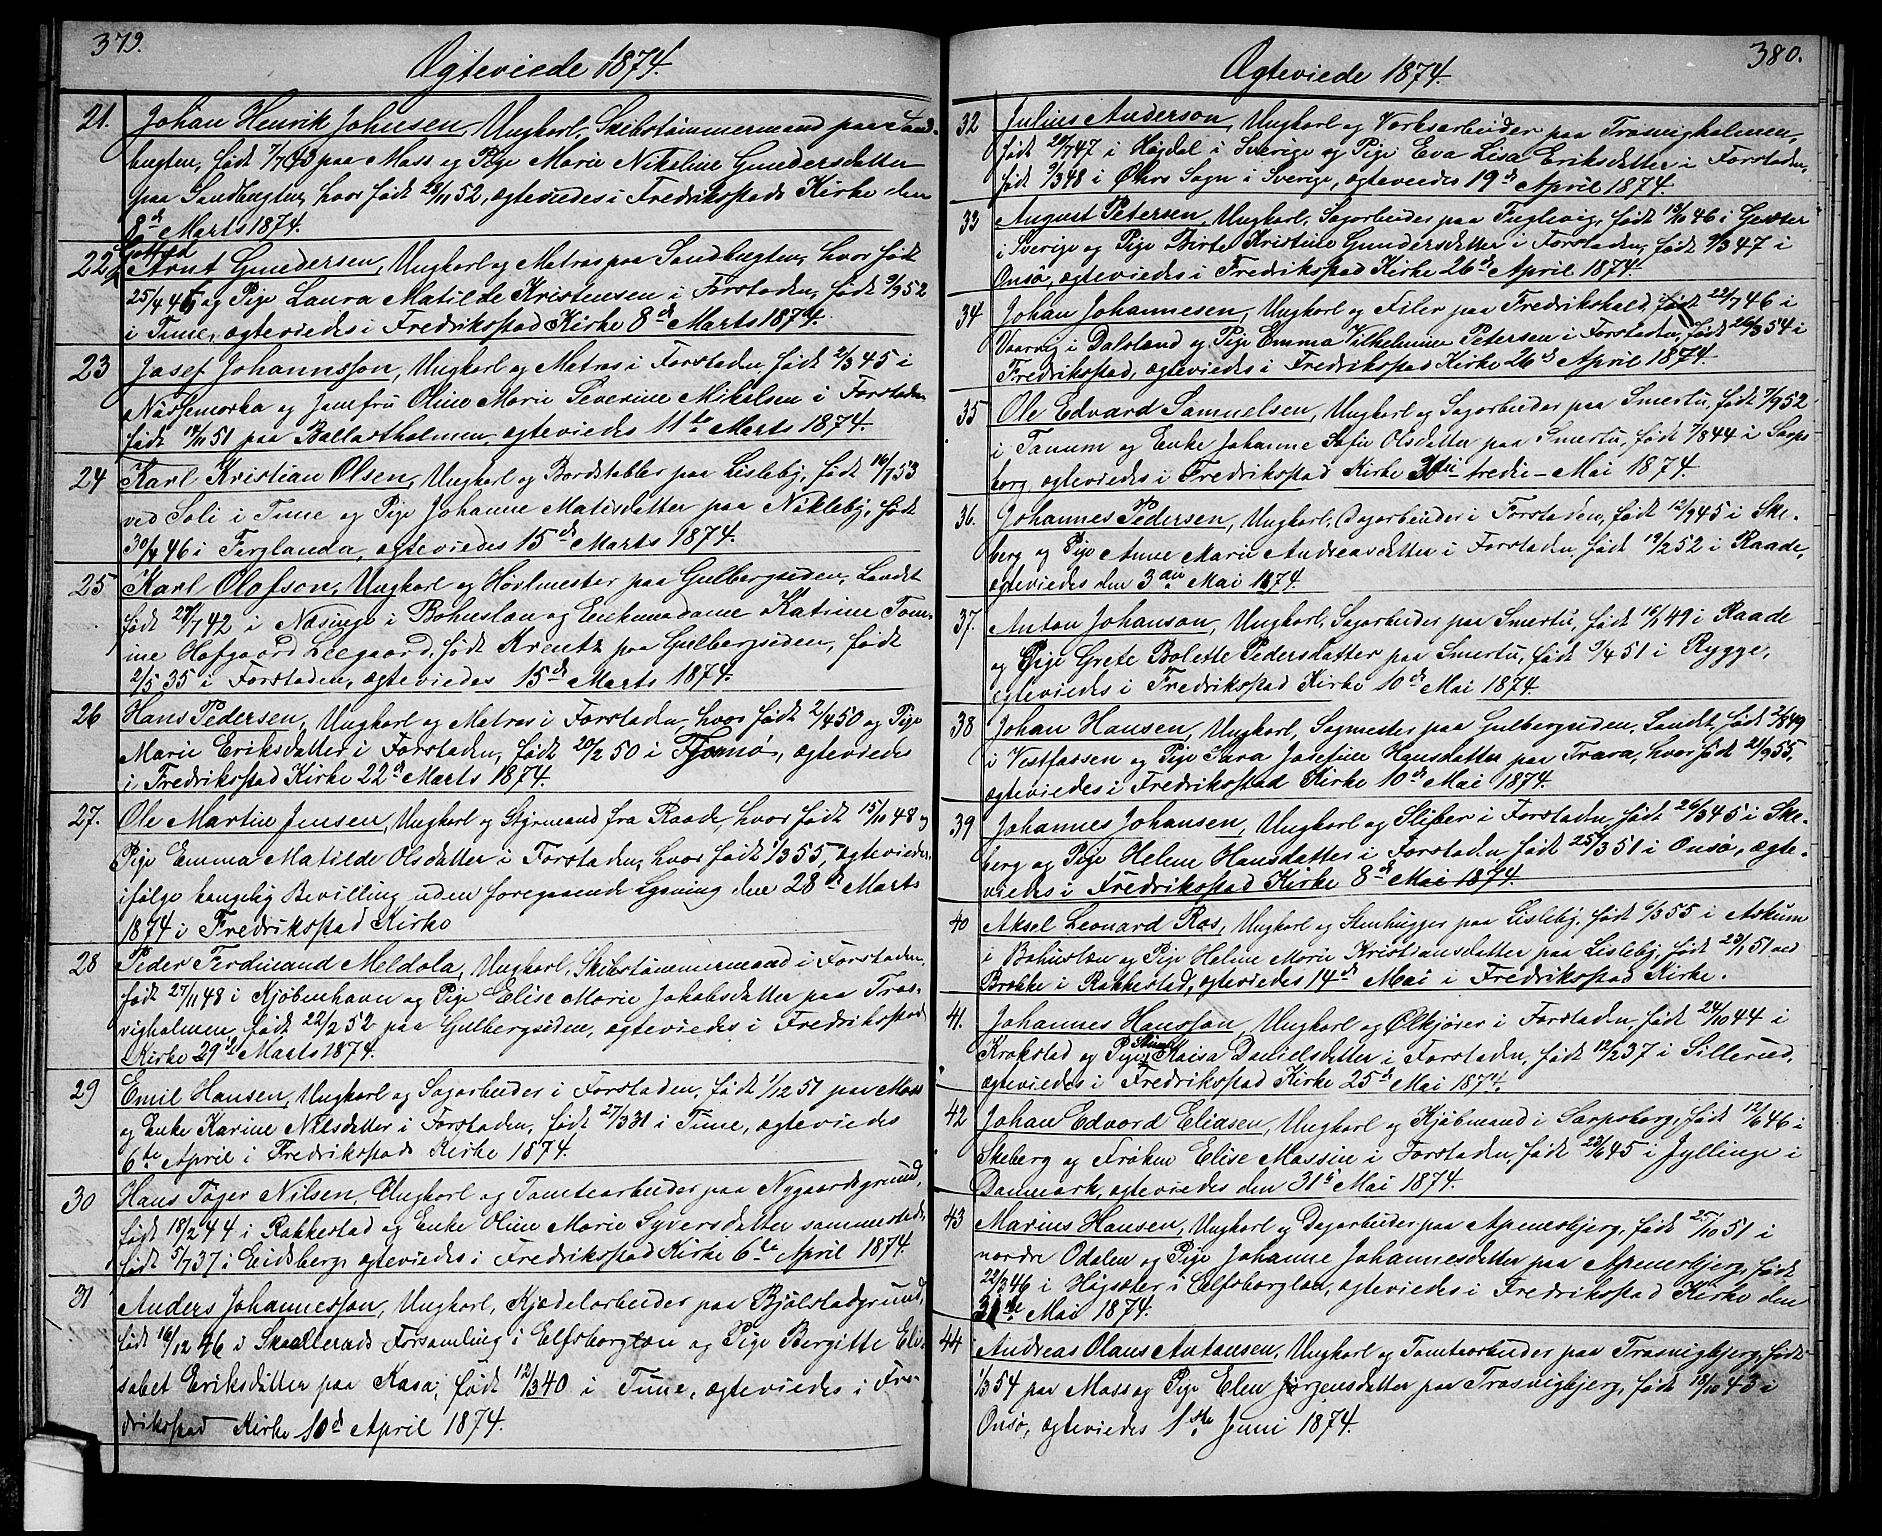 379.
Ægteviede 1874.
21. Johan Henrik Johnsen, Ungkarl, Skibstømmermand paa Sand-
bugten, født paa Moss og Pige Marie Nikoline Gundersdatter
paa Sandbugten, hvor født 28/11 52, ægteviedes i Fredrikstads Kirke den
8de Marts 1874.
22 Arnt Gundersen, Ungkarl og Matros paa Sandbugten, hvor født
25/4 46 og Pige Laura Matilde Kristensen i Forstaden, født 9/9 52
i Tune, ægteviedes i Fredrikstad Kirke 8de Marts 1874.
23 Josef Johannsson, Ungkarl og Matros i Forstaden, født 2/3 45 i
Nössemarka og Jomfru Oline Marie Severine Mikelsen i Forstaden
født 19/11 51 paa Ballastholmen, ægteviedes 11te Marts 1874.
24 Karl Kristian Olsen, Ungkarl og Bordstabler paa Lisleby, født 16/7 53
ved Soli i Tune og Pige Johanne Matisdatter paa Nikleby, født
30/4 46 i Ferglanda, ægteviedes 15de Marts 1874.
25 Karl Olofson, Ungkarl og Høvlmester paa Gulbergsiden, Landet
født 27/7 42 i Næsinge i Bohuslæn og Enkemadame Katrine Tom-
ine Hofgaard Leegaard, født Kreutz paa Gulbergsiden, født
2/5 35 i Forstaden, ægteviedes 15de Marts 1874.
26 Hans Pedersen, Ungkarl og Matros i Forstaden, hvor født 2/4 50 og Pige
Marie Eriksdatter i Forstaden, født 20/2 50 i Tjømø, ægteviedes
i Fredrikstad Kirke 22de Marts 1874.
27. Ole Martin Jensen, Ungkarl og Styrmand fra Raade, hvor født 15/10 48 og
Pige Emma Matilde Olsdatter i Forstaden, hvor født 1/3 55, ægteviedes
ifølge kongelig Bevilling uden foregaaende Lysning den 28de Marts
1874 i Fredrikstad Kirke
28 Peder Ferdinand Meldola, Ungkarl, Skibstømmermand i Forstaden,
født 27/11 48 i Kjøbenhavn og Pige Elise Marie Jakobsdatter paa Tros-
vigholmen, født 22/2 52 paa Gulbergsiden, ægteviedes i Fredrikstad
Kirke 29de Marts 1874.
29 Emil Hansen, Ungkarl og Sagarbeider i Forstaden, født 1/12 51 paa Moss
og Enke Karine Nilsdatter i Forstaden, født 27/3 31 i Tune, ægteviedes
6te April i Fredrikstads Kirke 1874.
30 Hans Tøger Nilsen, Ungkarl og Tomtearbeider paa Nygaardsgrund,
født 18/2 44 i Rakkestad og Enke Oline Marie Syversdatter sammesteds,
født 5/7 37 i Eidsberg, ægteviedes i Fredrikstad Kirke 6te April 1874.
31 Anders Johannesson, Ungkarl, Kjædelarbeider paa Bjølstadgrund,
født 16/12 46 i Skaellerads Forsamling i Elfsborglæn og Pige Bergitte Eli-
sabet Eriksdatter paa Kasa, født 12/3 40 i Tune, ægteviedes i Fre-
drikstad Kirke 10de April 1874.
380.
Ægteviede 1874.
32 Julius Anderson, Ungkarl og Værksarbeider paa Trosvigholmen,
født 20/7 47 i Høgdal i Sverige og Pige Eva Lisa Eriksdatter i Forstaden,
født 9/3 48 i Økre Sogn i Sverige, ægteviedes 19de April 1874.
33 August Petersen, Ungkarl, Sagarbeider paa Fuglevig, født 13/10 46 i
i Sverige og Pige Birte Kristine Gundersdatter i Forstaden, født 9/3 47 i
Onsø, ægteviedes i Fredrikstad Kirke 26de April 1874.
34 Johan Johannesen, Ungkarl og Filer paa Fredrikshald, født 22/7 46 i
Vaarvig i Dalsland og Pige Emma Vilhelmine Petersen i Forstaden, født 26/3 54 i
Fredrikstad, ægteviedes i Fredrikstad Kirke 26de April 1874.
35 Ole Edvard Samuelsen, Ungkarl og Sagarbeider paa Smertu, født 7/9 52
i Tanum og Enke Johanne Sofie Olsdatter paa Smertu, født 7/8 44 i Sarps
borg, ægteviedes i Fredrikstad Kirke tredie Mai 1874.
36. Johannes Pedersen, Ungkarl, Dagarbeider i Forstaden, født 12/9 45 i Ske-
berg og Pige Anne Marie Andreasdatter i Forstaden, født 19/2 52 i Raade,
ægteviedes den 3die Mai 1874.
37. Anton Johanson, Ungkarl, Sagarbeider paa Smertu, født 49 i Raade
og Pige Grete Bolette Pedersdatter paa Smertu, født 9/4 51 i Rygge,
ægteviedes i Fredrikstad Kirke 10de Mai 1874.
38 Johan Hansen, Ungkarl, Sagmester paa Gulbergsiden, Landet, født 2/8 49
i Vestfossen og Pige Sara Josefine Hansdatter paa Trara, hvor født 21/9 55,
ægteviedes i Fredrikstad Kirke 10de Mai 1874.
39 Johannes Johansen, Ungkarl og Sliber i Forstaden, født 26/3 45 i Ske-
berg og Pige Helene Hansdatter i Forstaden, født 25/3 51 i Onsø, ægte-
viedes i Fredrikstad Kirke 8de Mai 1874.
40 Aksel Leonard Ros, Ungkarl og Stenhugger paa Lisleby, født 6/3 55 i Askum
i Bohuslæn og Pige Helene Marie Kristiansdatter paa Lisleby, født 23/1 51 ved
Brække i Rakkestad, ægteviedes 14de Mai i Fredrikstad Kirke.
41. Johannes Hansson, Ungkarl og Ølkjører i Forstaden, født 24/10 44 i
Krokstad og Pige Stina Kaisa Danielsdatter i Forstaden, født 12/2 37 i Sillerud,
ægteviedes i Fredrikstad Kirke 25de Mai 1874.
42 Johan Edvard Eliasen, Ungkarl og Kjøbmand i Sarpsborg, født 12/6 46 i
Skeberg og Frøken Elise Massin i Forstaden, født 23/6 45 i Jyllinge i
Danmark, ægteviedes den 31te Mai 1874.
43 Marius Hansen, Ungkarl og Dagarbeider paa Apenesbjerg, født 25/10 51 i
nordre Odalen og Pige Johanne Johannesdatter paa Apenesbjerg, født
22/3 46 i Högsæter i Elfsborglæn, ægteviedes i Fredrikstad Kirke den
31te Mai 1874.
44 Andreas Olaus Antonsen, Ungkarl og Tomtearbeider paa Trosvigbjerg, født
1/3 54 paa Moss og Pige Elen Jørgensdatter paa Trosvigbjerg, født 18/10 43 i
Onsø, ægteviedes 1ste Juni 1874.